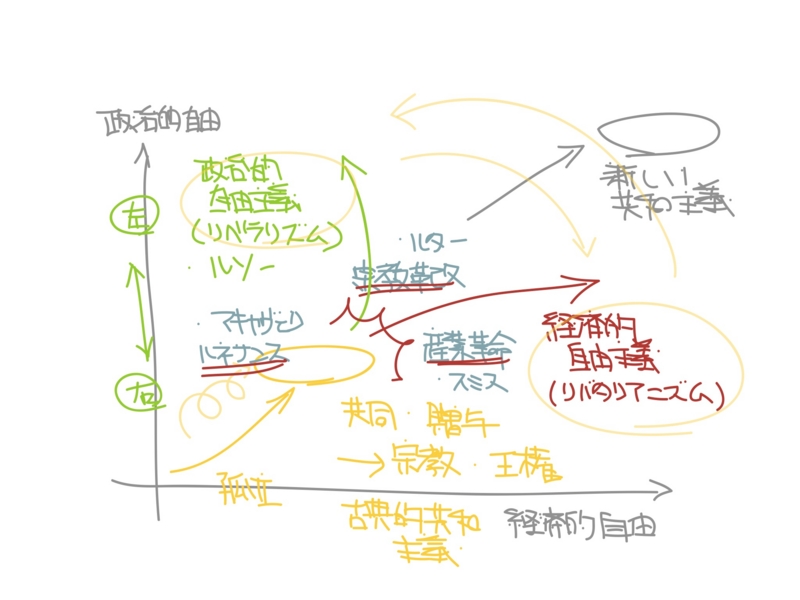 政治的自由
政治的
自由主義
(リベラリズム)
・ルソー
左
右
・ルター
宗教革改
・マキャヴェリ
ルネサンス
産業革命
・スミス
新しい
共和主義
経済的
自由主義
(リバタリアニズム)
共同・贈与
→宗教・王権
孤立
古典的共和
主義
経済的自由